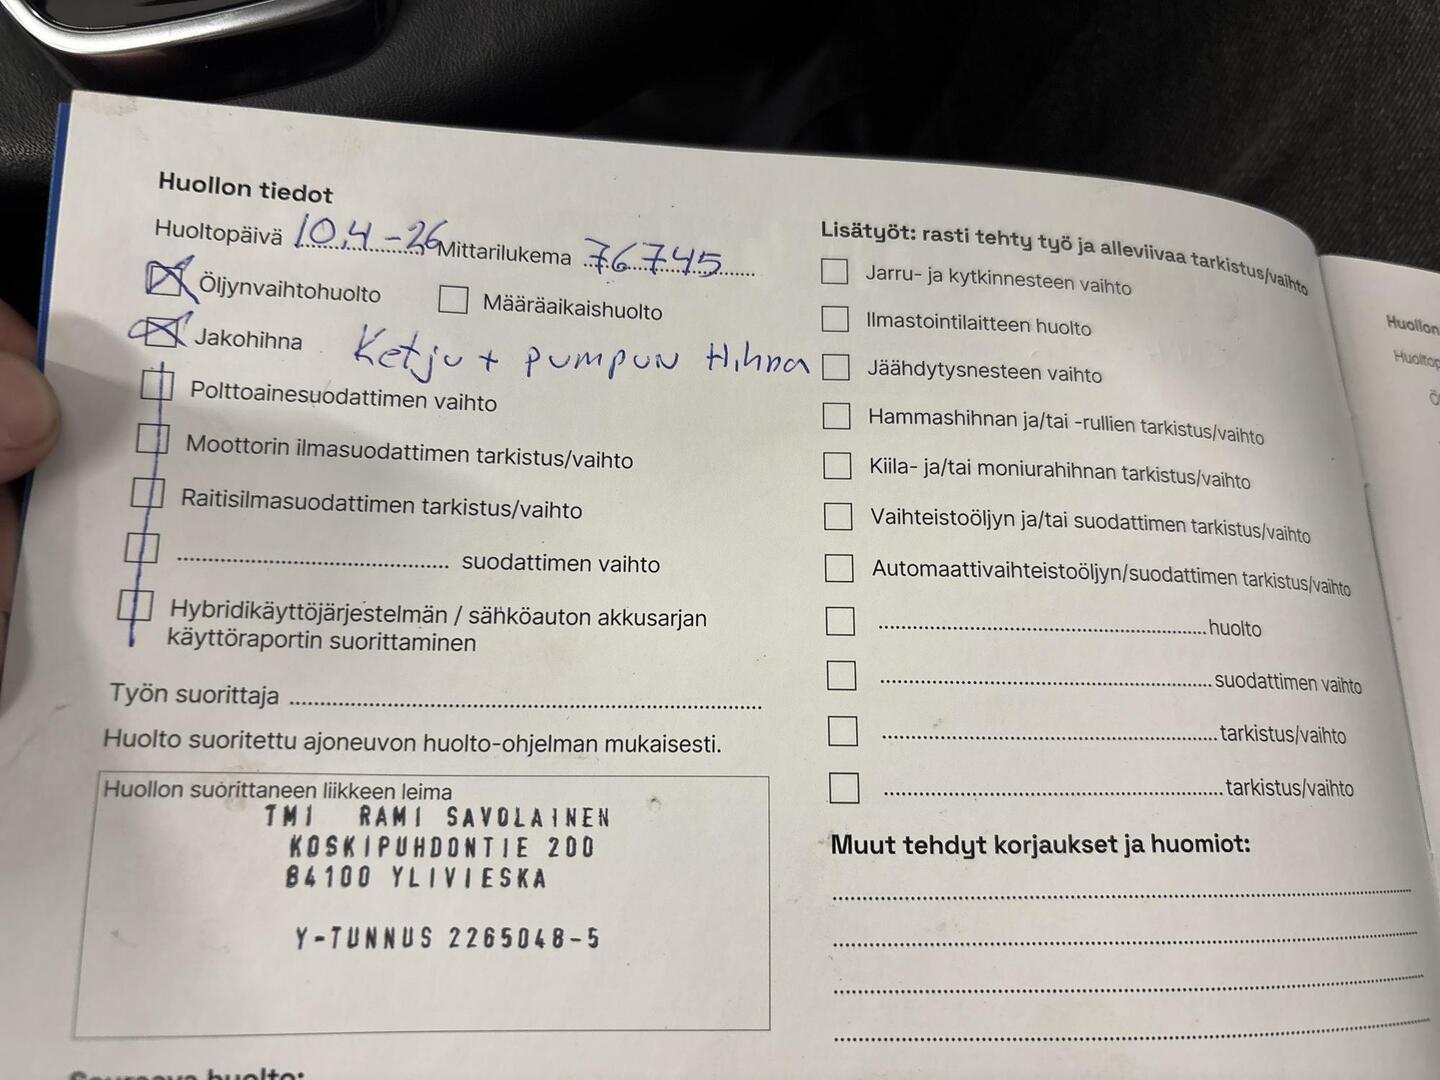 Huollon tiedot
Huoltopäivä 10.4-26 Mittarilukema 76745
Öljynvaihtohuolto Määräaikaishuolto
Jakohihna Ketju + pumpun Hihna
Polttoainesuodattimen vaihto
Moottorin ilmasuodattimen tarkistus/vaihto
Raitisilmasuodattimen tarkistus/vaihto
........................................ suodattimen vaihto
Hybridikäyttöjärjestelmän / sähköauton akkusarjan
käyttöraportin suorittaminen
Työn suorittaja ........................................
Huolto suoritettu ajoneuvon huolto-ohjelman mukaisesti.
Huollon suorittaneen liikkeen leima
TMI RAMI SAVOLAINEN
KOSKIPUHDONTIE 200
84100 YLIVIESKA
Y-TUNNUS 2265048-5
Lisätyöt: rasti tehty työ ja alleviivaa tarkistus/vaihto
Jarru- ja kytkinnesteen vaihto
Ilmastointilaitteen huolto
Jäähdytysnesteen vaihto
Hammashihnan ja/tai -rullien tarkistus/vaihto
Kiila- ja/tai moniurahihnan tarkistus/vaihto
Vaihteistoöljyn ja/tai suodattimen tarkistus/vaihto
Automaattivaihteistoöljyn/suodattimen tarkistus/vaihto
........................................huolto
........................................suodattimen vaihto
........................................tarkistus/vaihto
........................................tarkistus/vaihto
Muut tehdyt korjaukset ja huomiot:
Huollon